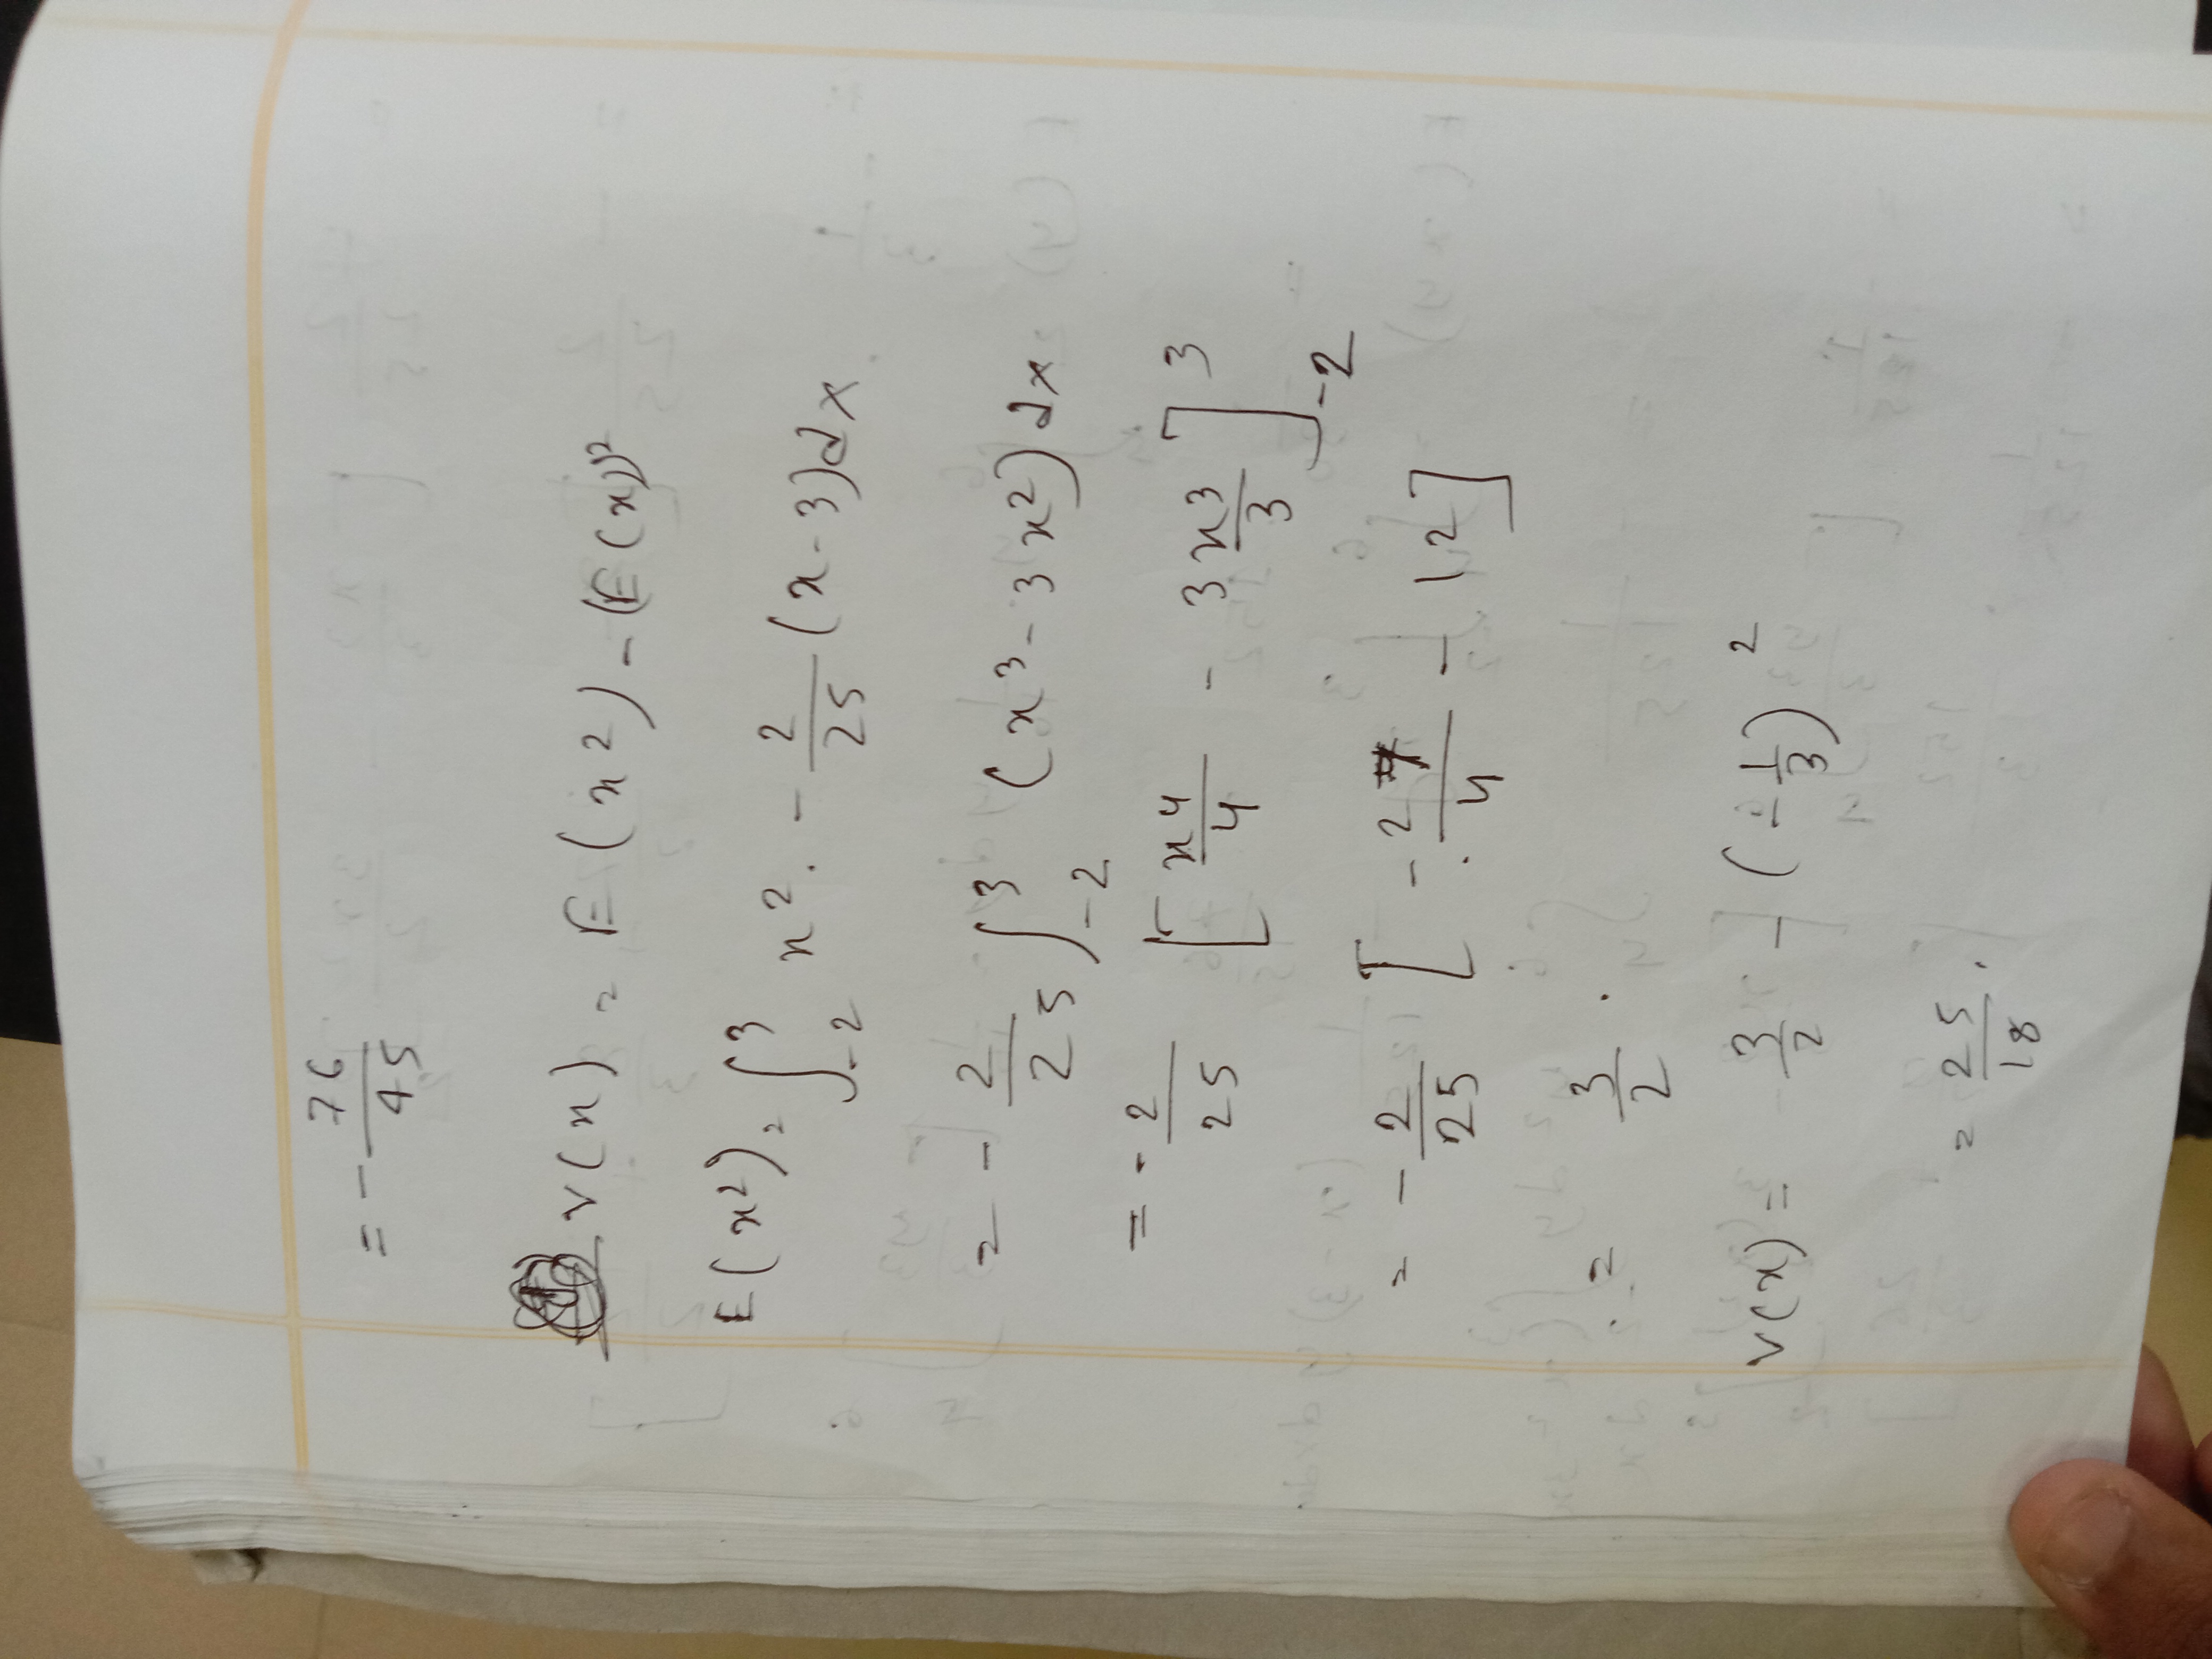 = - 76/45
V(x) = E(x²) - (E(x))²
E(x²) = ∫₋₂³ x² . - 2/25 (x - 3)dx
= - 2/25 ∫₋₂³ (x³ - 3x²)dx
= - 2/25 [x⁴/4 - 3x³/3]₋₂³
= - 2/25 [ - 27/4 - 12]
= 3/2 .
V(x) = 3/2 - (-1/3)²
= 25/18 .